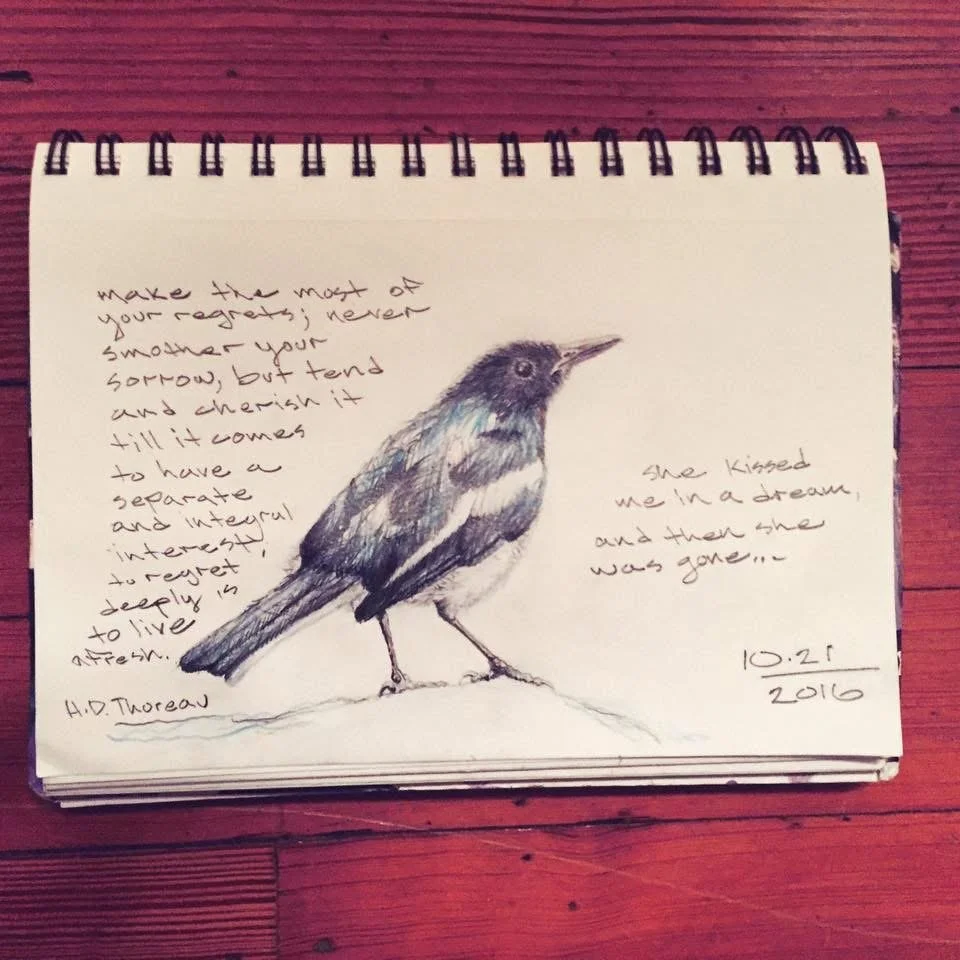 make the most of
your regrets; never
smother your
sorrow, but tend
and cherish it
till it comes
to have a
separate
and integral
interest,
to regret
deeply is
to live
afresh.
H.D. Thoreau
she kissed
me in a dream,
and then she
was gone...
10.21
2016